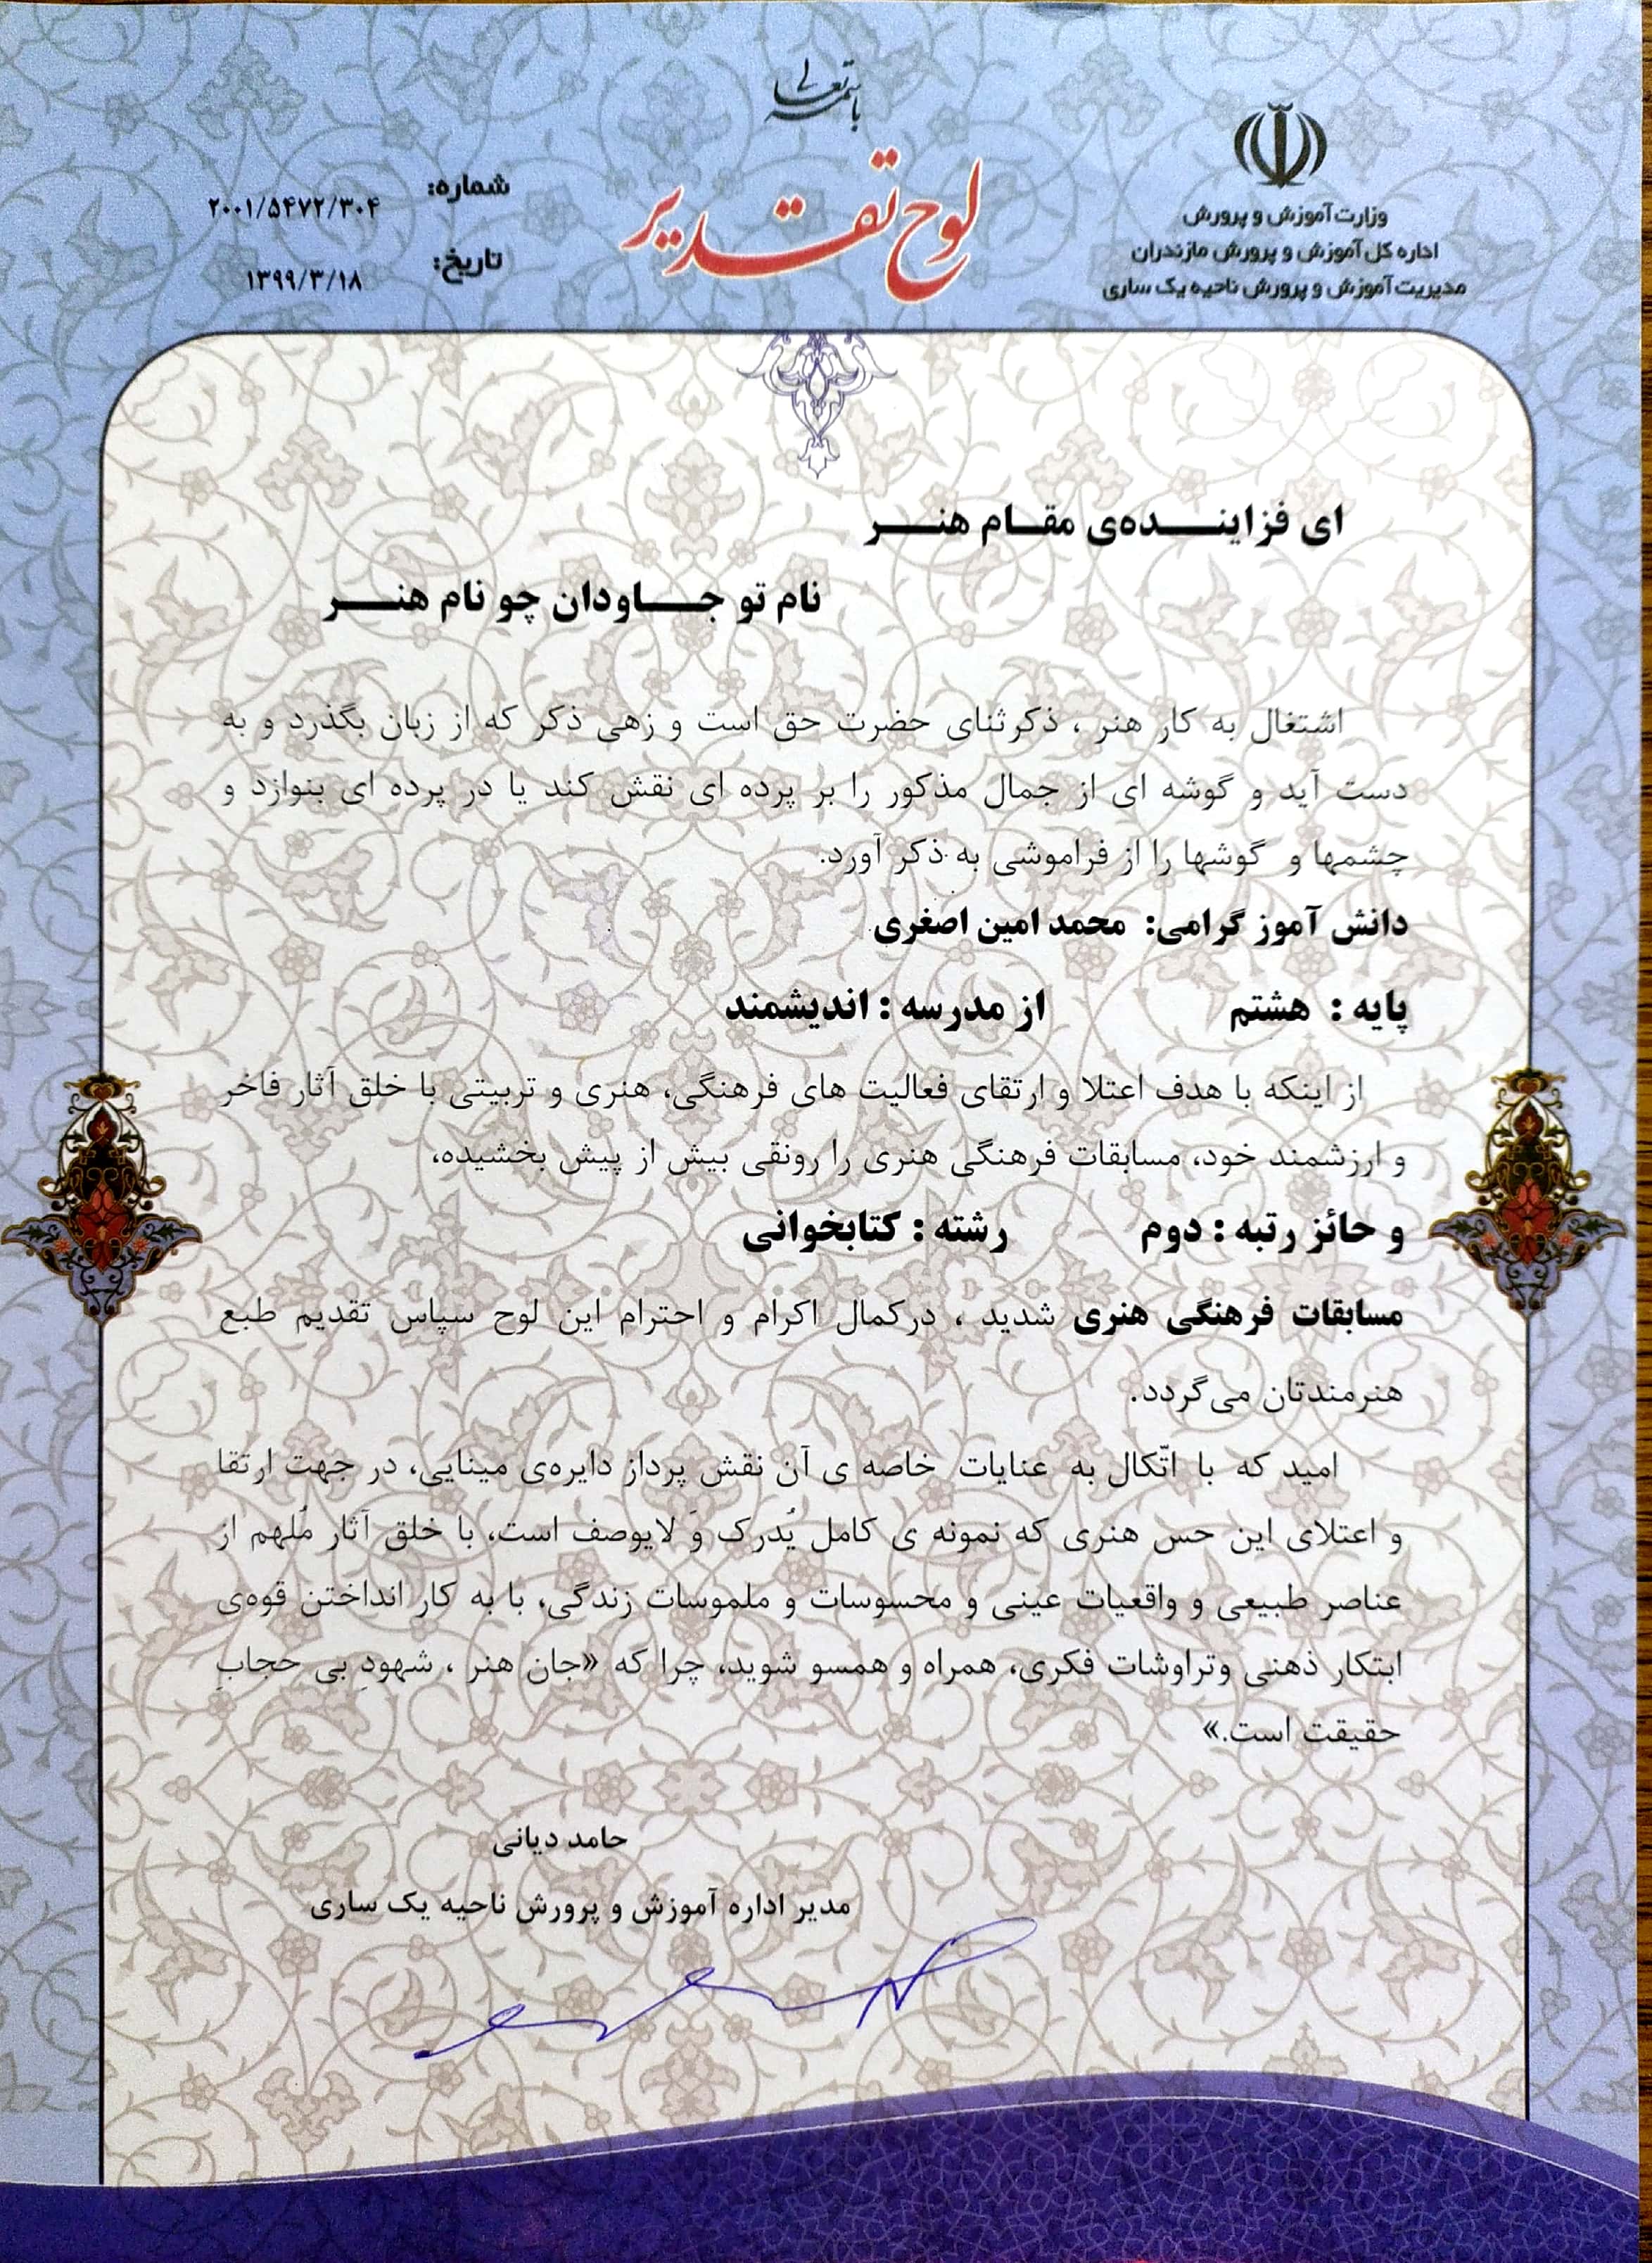 باسمه تعالی
لوح تقدیر
وزارت آموزش و پرورش
اداره کل آموزش و پرورش مازندران
مدیریت آموزش و پرورش ناحیه یک ساری
شماره:
۲۰۰۱/۵۴۷۲/۳۰۴
تاریخ:
۱۳۹۹/۳/۱۸
ای فزاینـــــده‌ی مقــام هنـــر
نام تو جـــــاودان چو نام هنـــــر
اشتغال به کار هنر ، ذکرثنای حضرت حق است و زهی ذکر که از زبان بگذرد و به
دست آید و گوشه ای از جمال مذکور را بر پرده ای نقش کند یا در پرده ای بنوازد و
چشمها و گوشها را از فراموشی به ذکر آورد.
دانش آموز گرامی: محمد امین اصغری
پایه : هشتم از مدرسه : اندیشمند
از اینکه با هدف اعتلا و ارتقای فعالیت های فرهنگی، هنری و تربیتی با خلق آثار فاخر
و ارزشمند خود، مسابقات فرهنگی هنری را رونقی بیش از پیش بخشیده،
و حائز رتبه : دوم رشته : کتابخوانی
مسابقات فرهنگی هنری شدید ، درکمال اکرام و احترام این لوح سپاس تقدیم طبع
هنرمندتان می‌گردد.
امید که با اتّکال به عنایات خاصه ی آن نقش پرداز دایره‌ی مینایی، در جهت ارتقا
و اعتلای این حس هنری که نمونه ی کامل یُدرک وَ لایوصف است، با خلق آثار مُلهم از
عناصر طبیعی و واقعیات عینی و محسوسات و ملموسات زندگی، با به کار انداختن قوه‌ی
ابتکار ذهنی وتراوشات فکری، همراه و همسو شوید، چرا که «جان هنر ، شهودِ بی حجابِ
حقیقت است.»
حامد دیانی
مدیر اداره آموزش و پرورش ناحیه یک ساری